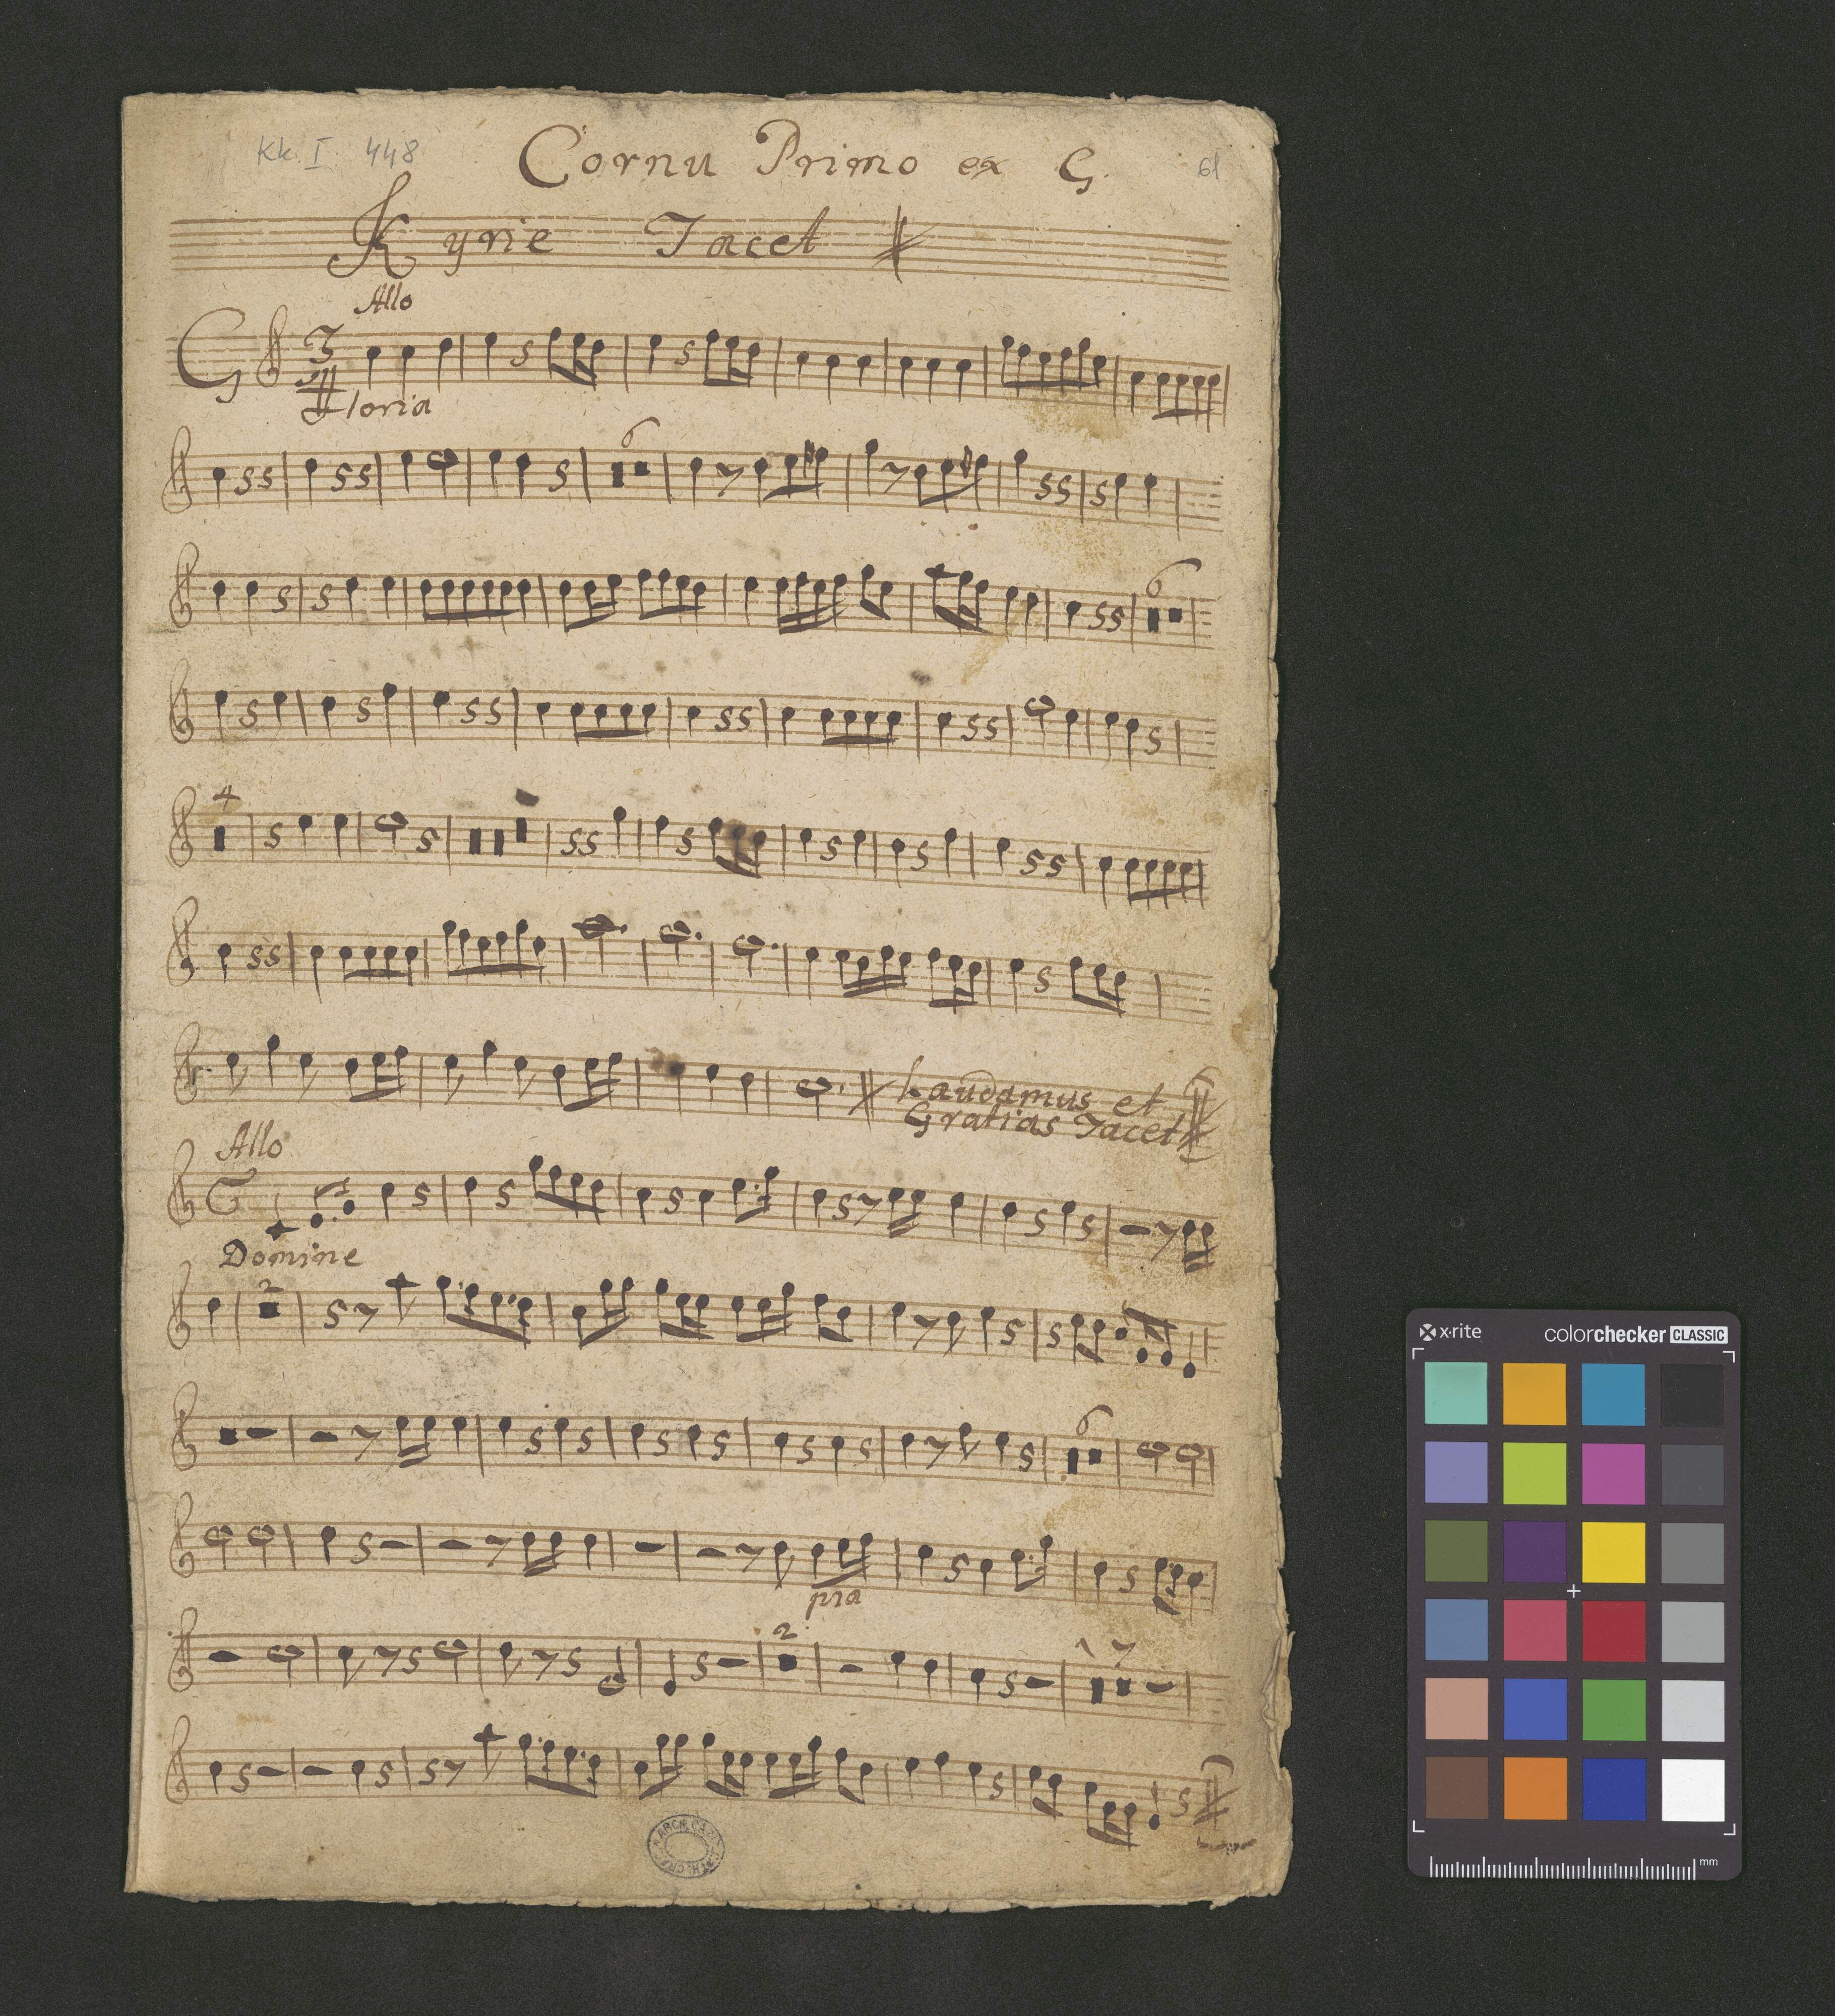 Kk. I. 448
Cornu Primo ex G.
61
Kyrie Tacet
Allo
3
Gloria
6
6
4
Laudamus et
Gratias Tacet
Allo
Domine
2
6
pia
2
x-rite
colorchecker CLASSIC
mm